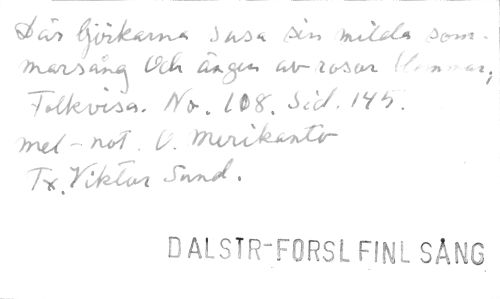 Där björkarna susa sin milda som-
marsång Och ängen av rosor blommar,
Folkvisa. No. 108. Sid. 145.
mel-not. O. Merikanto
Tx. Viktor Sund.
DALSTR-FORSL FINL SÅNG